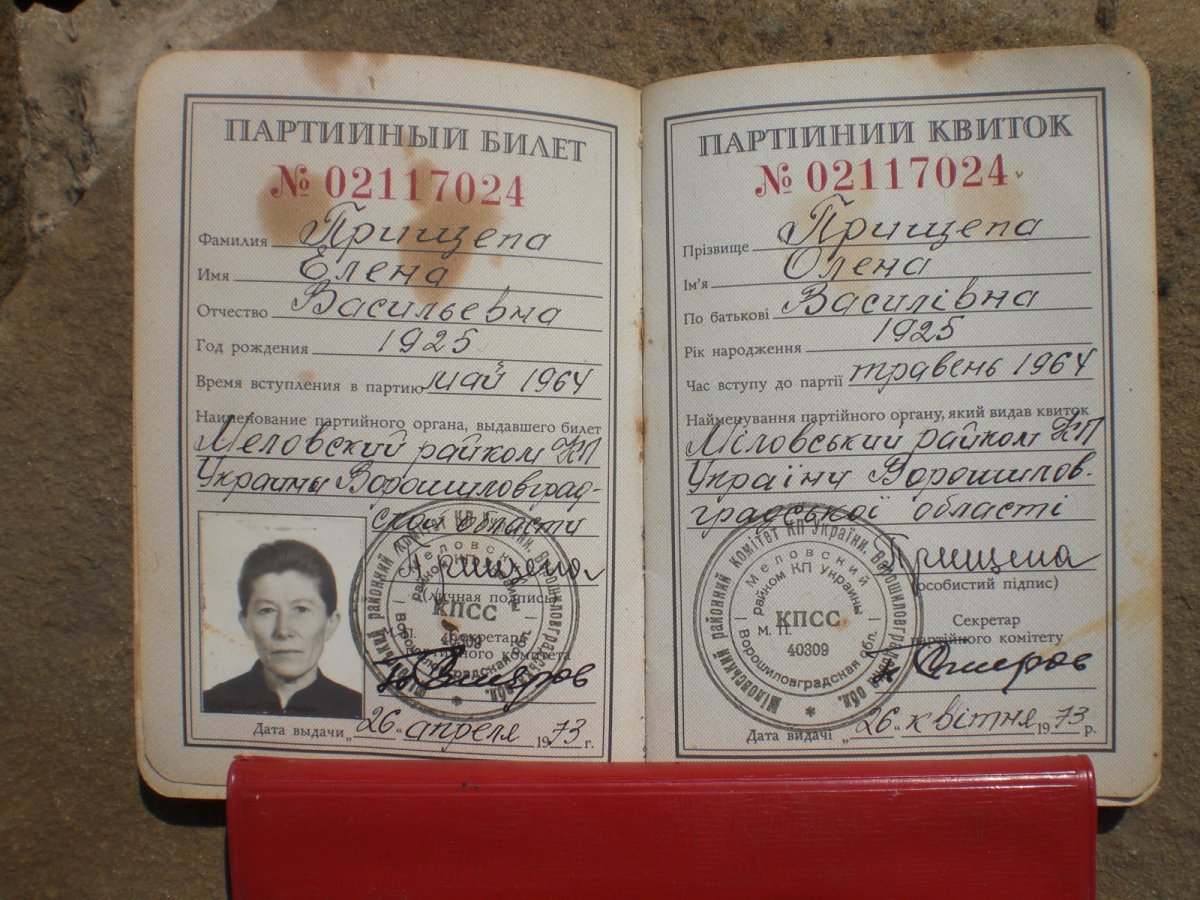 ПАРТИЙНЫЙ БИЛЕТ
№ 02117024
Фамилия Прищепа
Имя Елена
Отчество Васильевна
Год рождения 1925
Время вступления в партию май 1964
Наименование партийного органа, выдавшего билет
Меловский райком КП
Украины Ворошиловград-
ской области
Прищепа
(личная подпись)
М. П. Секретарь
партийного комитета
Меловский
райком КП Украины
КПСС
40309
Ворошиловградская обл.
Дата выдачи „26" апреля 1973 г.
ПАРТІЙНИЙ КВИТОК
№ 02117024
Прізвище Прищепа
Ім'я Олена
По батькові Василівна
Рік народження 1925
Час вступу до партії травень 1964
Найменування партійного органу, який видав квиток
Міловський райком КП
України Ворошилов-
градської області
Прищепа
(особистий підпис)
Секретар
партійного комітету
М. П.
Міловський районний комітет КП України. Ворошиловградська обл.
Меловский
райком КП Украины
КПСС
40309
Ворошиловградская обл.
Дата видачі „26" квітня 1973 р.